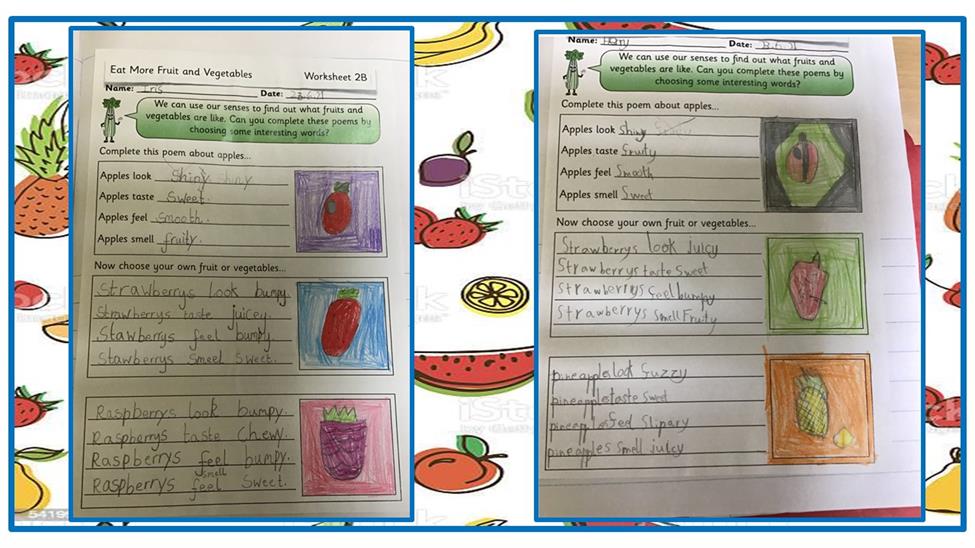 Eat More Fruit and Vegetables Worksheet 2B
Name: Iris Date: 23.6.21
We can use our senses to find out what fruits and
vegetables are like. Can you complete these poems by
choosing some interesting words?
Complete this poem about apples...
Apples look shiny shiny
Apples taste sweet.
Apples feel smooth.
Apples smell fruity.
Now choose your own fruit or vegetables...
Strawberrys look bumpy.
Strawberrys taste juicey.
Stawberrys feel bumpy.
Stawberrys smeel sweet.
Raspberrys look bumpy.
Raspberrys taste chewy.
Raspberrys feel bumpy.
smell
Raspberrys feel sweet.
54199
Name: Harry Date: 23.6.21
We can use our senses to find out what fruits and
vegetables are like. Can you complete these poems by
choosing some interesting words?
Complete this poem about apples...
Apples look shiny
Apples taste fruity
Apples feel smooth
Apples smell sweet
Now choose your own fruit or vegetables...
Strawberrys look juicy
Strawberrys taste sweet
Strawberrys feel bumpy
Strawberrys smell fruity
pineapples look fuzzy
pineapples taste sweet
pineapples feel slipary
pineapples smell juicy
iStock
iStock